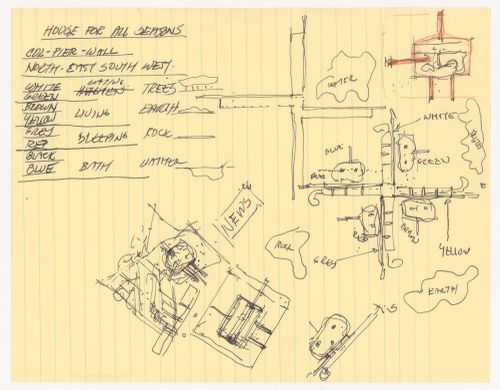 HOUSE FOR ALL SEASONS
COL-PIER-WALL
NORTH-EAST SOUTH WEST.
WHITE EATING KITCHEN TREES
GREEN
BROWN LIVING EARTH
YELLOW
GREY SLEEPING ROCK
RED
BLACK
BLUE BATH WATER
WATER
WHITE
BLUE
GREEN
BLACK
E
BROWN
YELLOW
GREY
NEWS
ROCK
EARTH
S